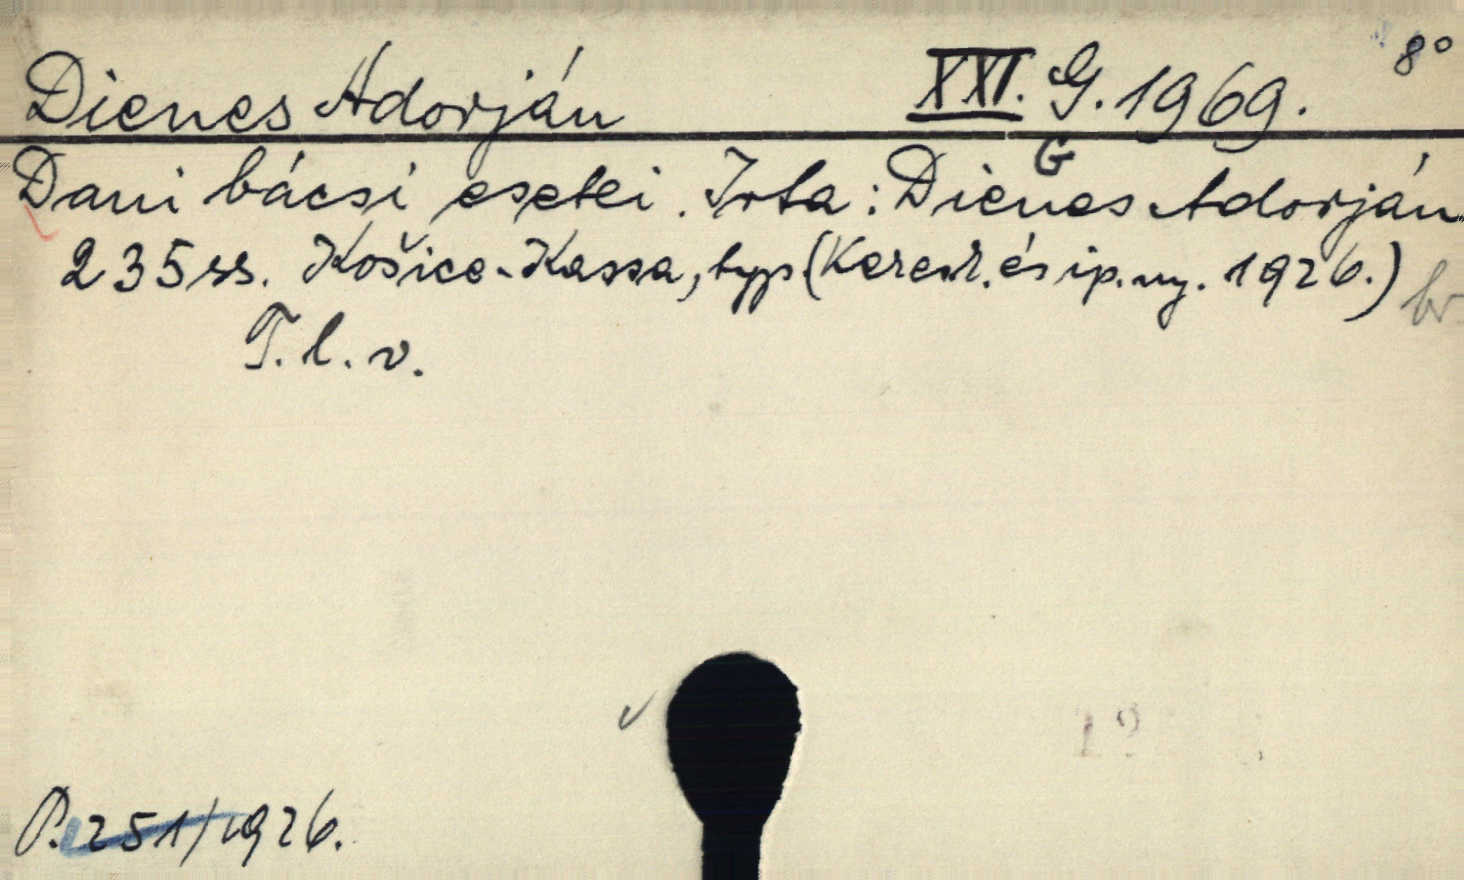 Dienes Adorján XXI. G. 1969. 8°
G
Dani bácsi esetei. Irta: Dienes Adorján
235 ss. Košice-Kassa, typ (Keresk. és ip. ny. 1926.) br.
T. l. v.
12
P. 251/1926.